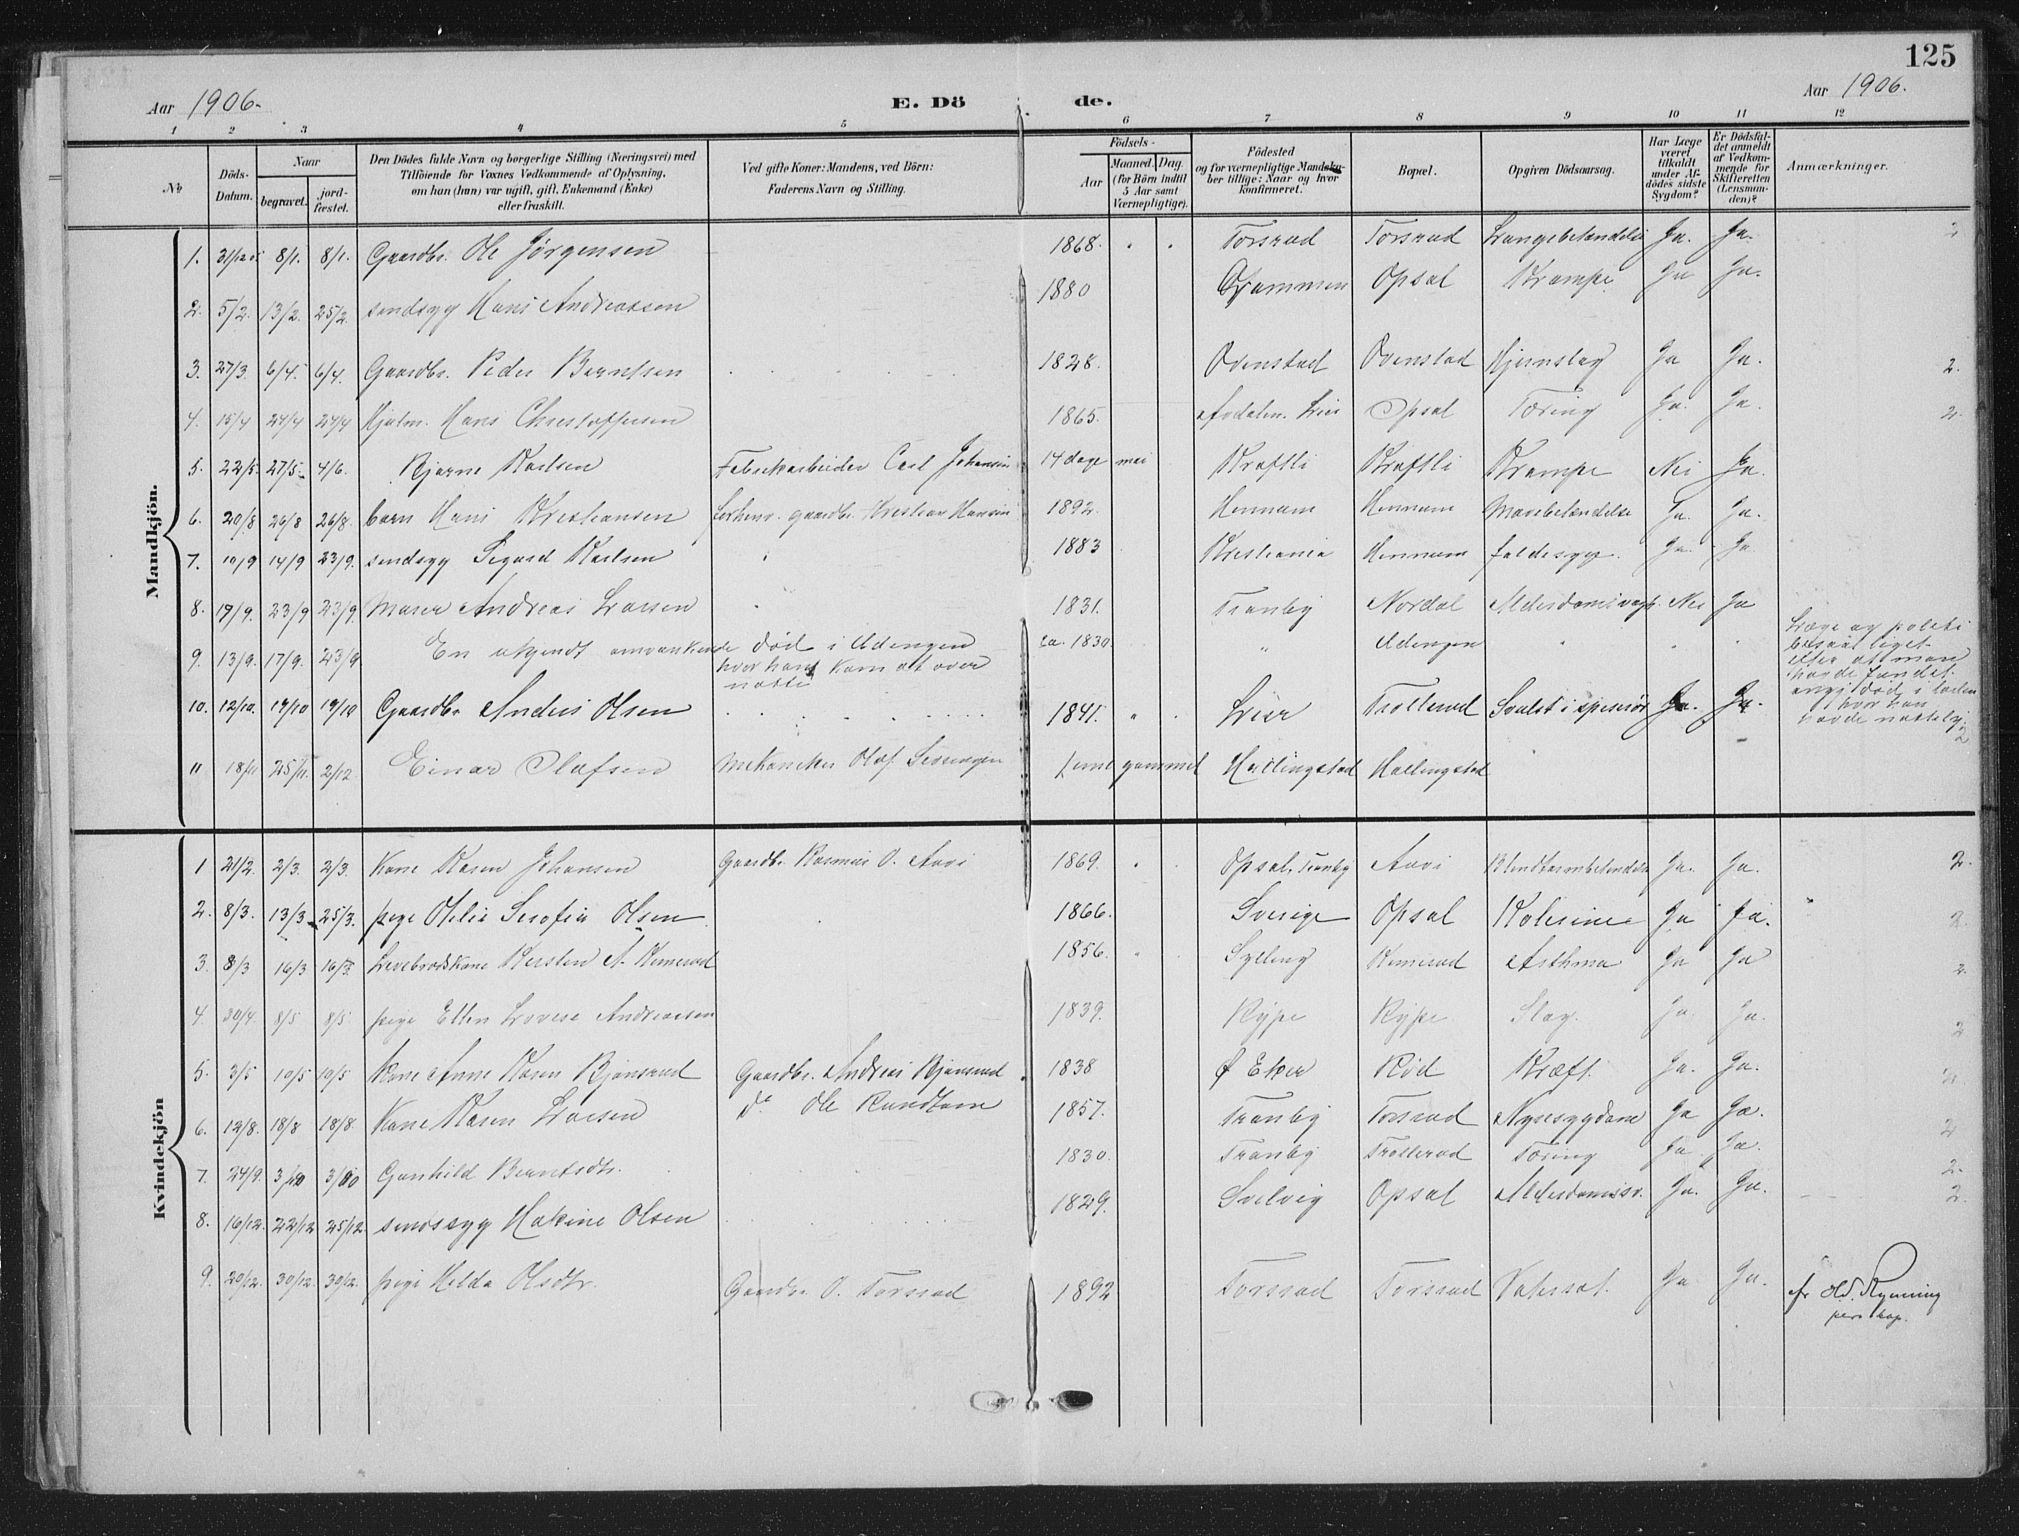 125
Aar 1906.
E. Dö
de.
Aar 1906.
1 2 3 4 5 6 7 8 9 10 11 12
№
Döds-Datum.
Naar
begravet.
jord-fæstet.
Den Dödes fulde Navn og borgerlige Stilling (Næringsvei) med
Tilföiende for Voxnes Vedkommende af Oplysning,
om han (hun) var ugift, gift, Enkemand (Enke)
eller fraskilt.
Ved gifte Koner: Mandens, ved Börn:
Faderens Navn og Stilling.
Födsels-
Aar
Maaned. Dag.
(for Börn indtil
5 Aar samt
Værnepligtige).
Födested
og for værnepligtige Mandska-
ber tillige: Naar og hvor
konfirmeret.
Bopæl.
Opgiven Dödsaarsag.
Har Læge
været
tilkaldt
under Af-
dödes sidste
Sygdom?
Er Dödsfal-
det anmeldt
af Vedkom-
mende for
Skifteretten
(Lensman-
den)?
Anmærkninger.
Mandkjön.
1. 31/12 05 8/1. 8/1. Gaardbr. Ole Jörgensen 1868. Torsrud Torsrud Lungebetændelse Ja. Ja. 2
2. 5/2. 13/2. 25/2. sindsyg Hans Andreassen 1880 Drammen Opsal Krampe Ja Ja.
3. 27/3. 6/4. 6/4. Gaardbr. Peder Berntsen 1828. Ovenstad Ovenstad Hjernslag Ja Ja. 2.
4. 15/4 24/4 24/4 Hjulm. Hans Christoffersen 1865. Lier Opsal Tæring Ja. Ja. 2.
5. 22/5. 27/5. 4/6. Bjarne Karlsen Fabrikarbeider Carl Johansen 14 dage mai Kraftli Kraftli Krampe Nei Ja.
6. 20/8 26/8 26/8. barn Hans Kristiansen gaardbr. Kristian Hansen 1892. Hennum Hennum Mavebetændelse Ja. Ja.
7. 10/9 14/9 23/9. sindsyg Sigurd Karlsen 1883 Kristiania Hennum faldesyge. Ja. Ja
8. 17/9. 23/9 23/9. Murer Andreas Larsen 1831. Tranby Nordal Alderdomssvagh. Nei Ja
9. 13/9. 17/9. 23/9 En ukjendt omvankende død i Udengen
hvor han kom at over
natte ca. 1830. " Udengen
Læge og politi
besaa liget
efter at man
havde fundet
død i laden
hvor han
havde nattely.
10. 12/10. 19/10 19/10 Gaardbr Anders Olsen 1841. Lier Trollerud Svulst i spiserør Ja. Ja. 2
11 18/11 25/11. 2/12 Einar Olafsen Mekaniker Olaf 1 time gammel Hallingstad Hallingstad
Kvindekjön
1 21/2. 2/3. 2/3. Kone Karen Johansen Gaardbr. Rasmus O. Aavi 1869. Opsal, Tranby Aavi Blindtarmbetændelse Ja. Ja. 2.
2. 8/3. 13/3. 25/3. pige Otelie Serofia Olsen. 1866. Sverige Opsal Kolerine Ja Ja. 2.
3. 8/3 16/3 16/3. Levebrødskone Kersten A. Kimerud 1856. Sylling Kimerud Asthma Ja Ja 2.
4. 30/4. 8/5 8/5. pige Ellen Lovise Andreasen 1839. Rype Rype Slag. Ja. Ja. 2
5. 3/5 10/5 10/5 Kone Anne Karen Bjønsrud Gaardbr. Andreas Bjønsrud 1838 Ø Eker Rød Kræft. Ja. Ja. 2.
6. 12/8. 18/8 18/8. Kone Karen Larsen do Ole Rundtom 1857. Tranby Torsrud Nyresygdom Ja Ja. 2
7. 24/9. 3/10 3/10 Gunhild Berntsdtr. 1830. Tranby Trollerud Tæring Ja Ja. 2.
8. 16/12. 22/12 25/12. sindssyg Hakine Olsen 1829. Svelvig Opsal Alderdomssv. Ja. Ja. 2.
9. 20/12. 30/12. 30/12. pige Helda Olsdtr. Gaardbr O. Torsrud 1892 Torsrud Torsrud Ja Ja.
fr Old. Rynning
pers kap.